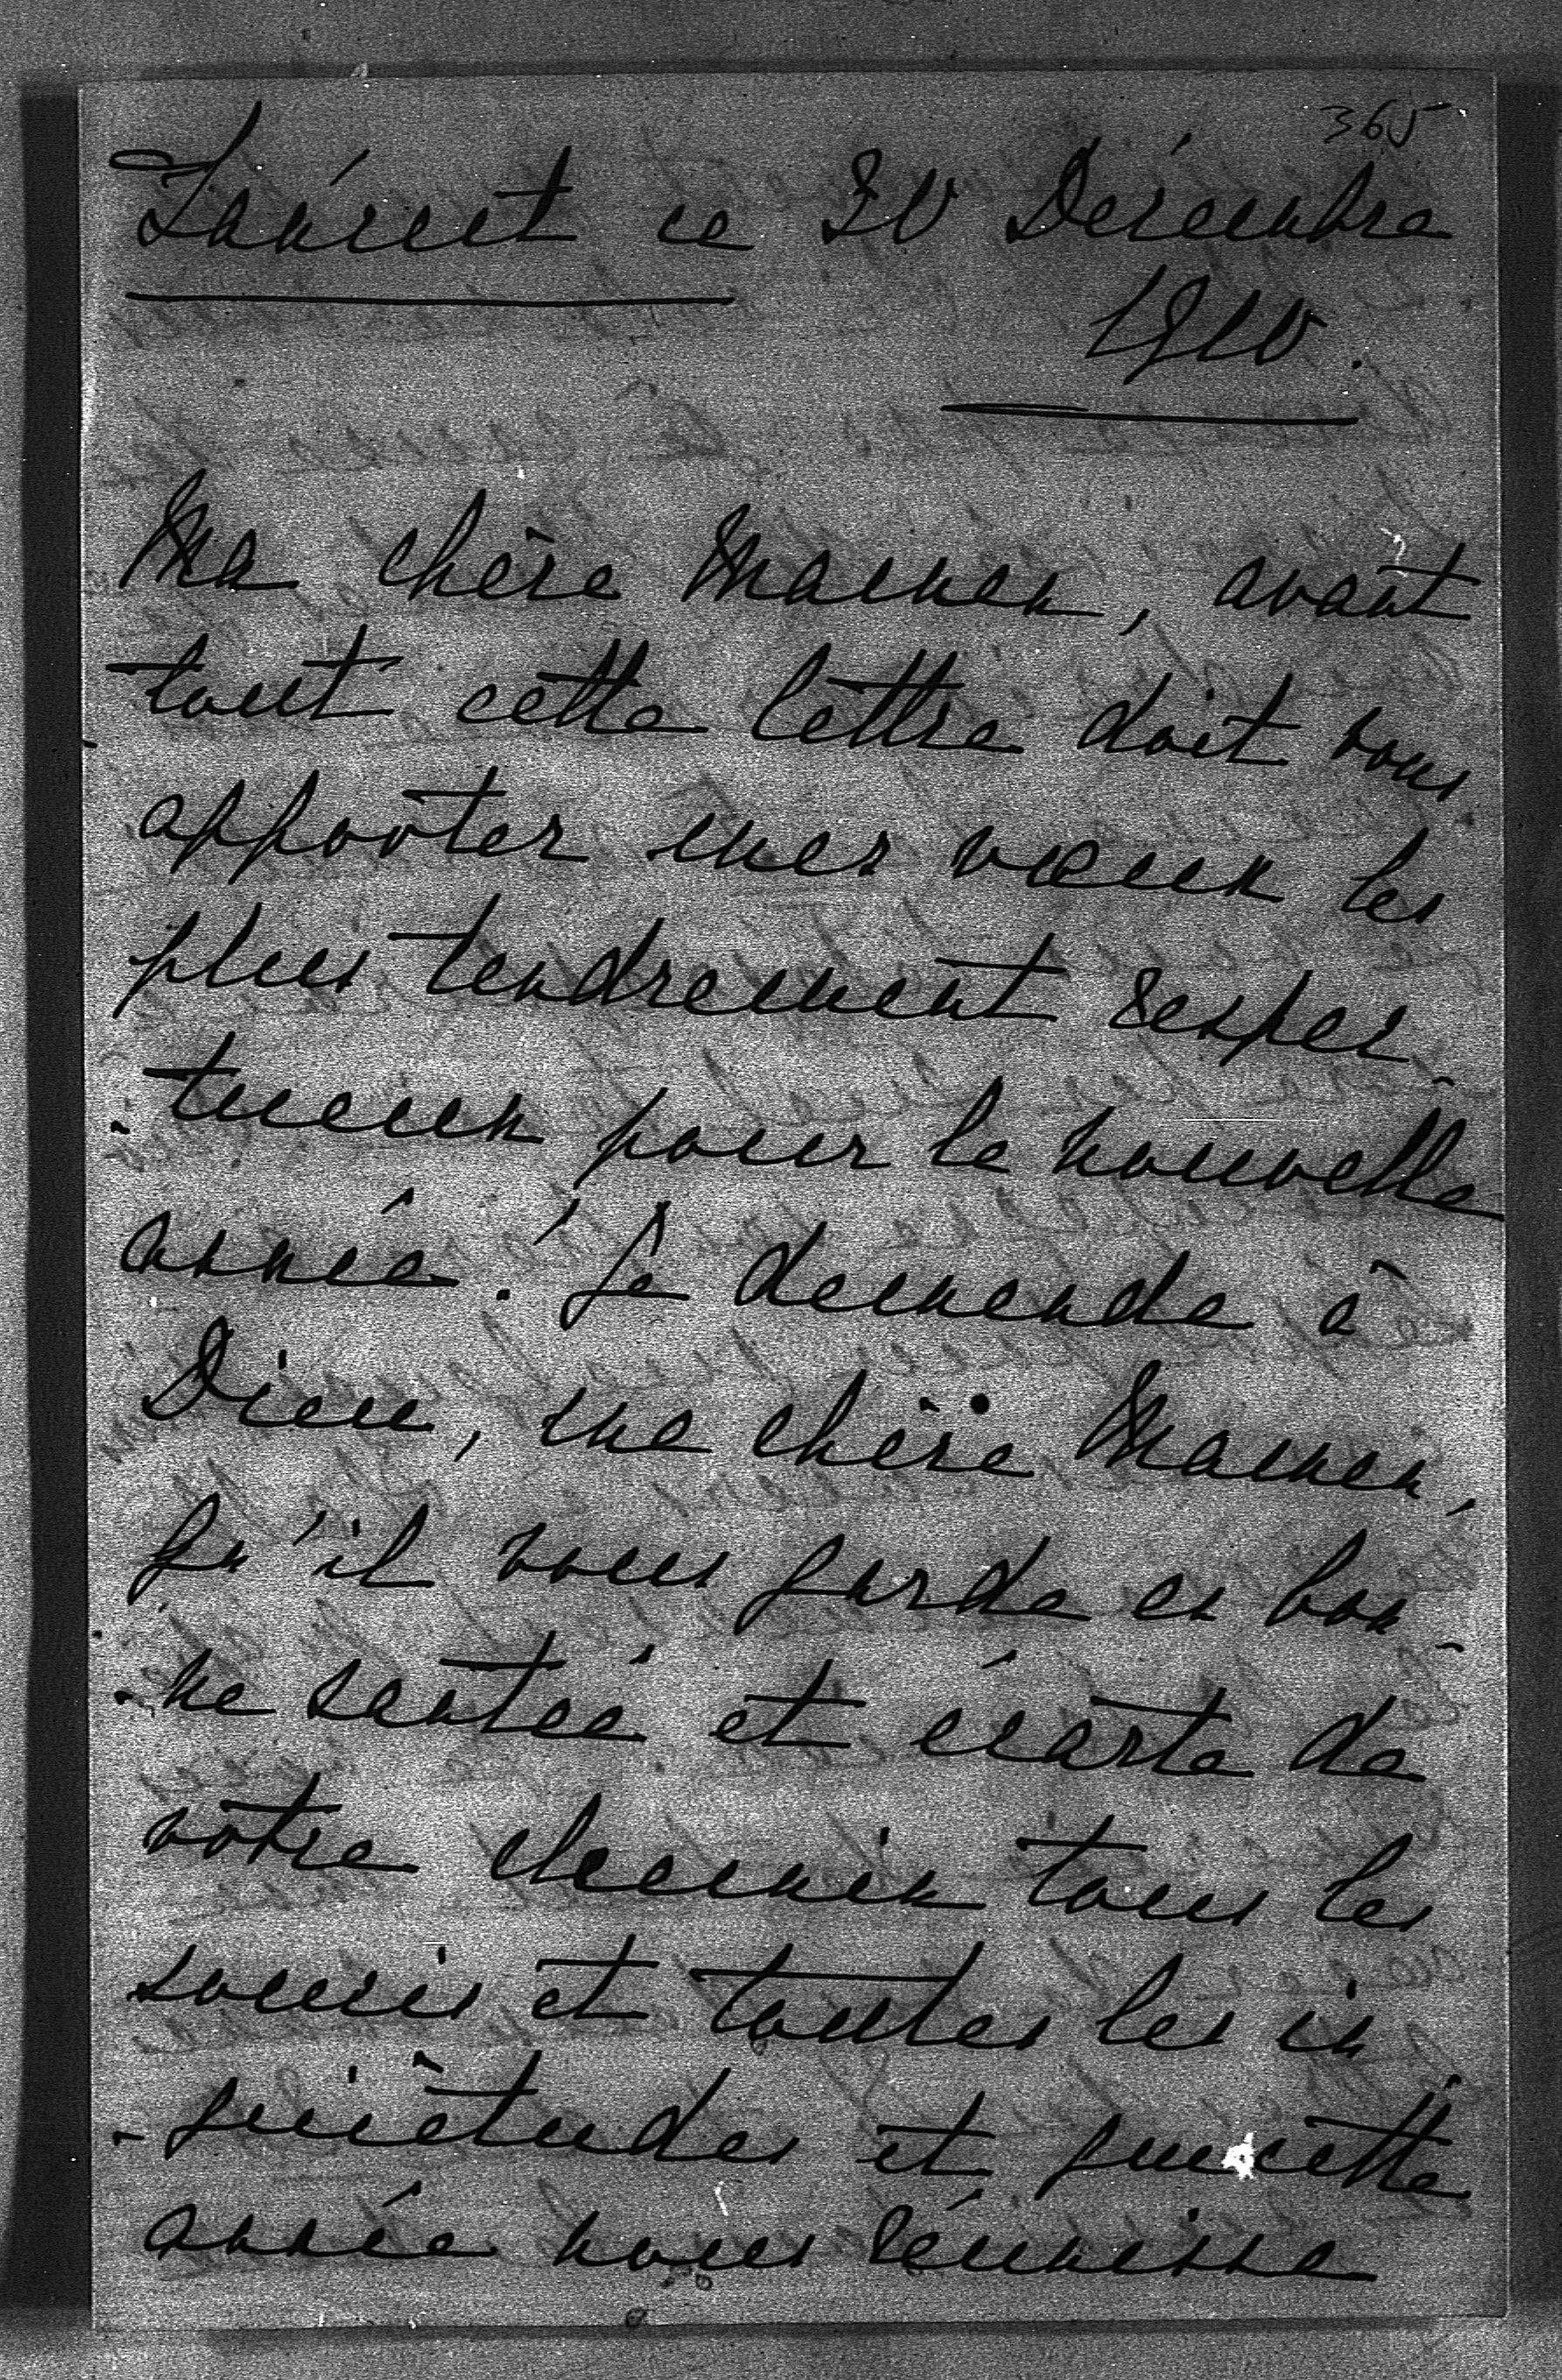 365
ce 30 Décembre
1910.
Ma chère Maman, avant
tout cette lettre doit vous
apporter mes vœux les
plus tendrement respec-
-tueux pour la nouvelle
année! Je demande à
Dieu, ma chère Maman,
qu'il vous garde en bon-
-ne santée et écarte de
votre chemin tous les
soucis et toutes les in-
-quiètudes et que cette
année nous réunisse